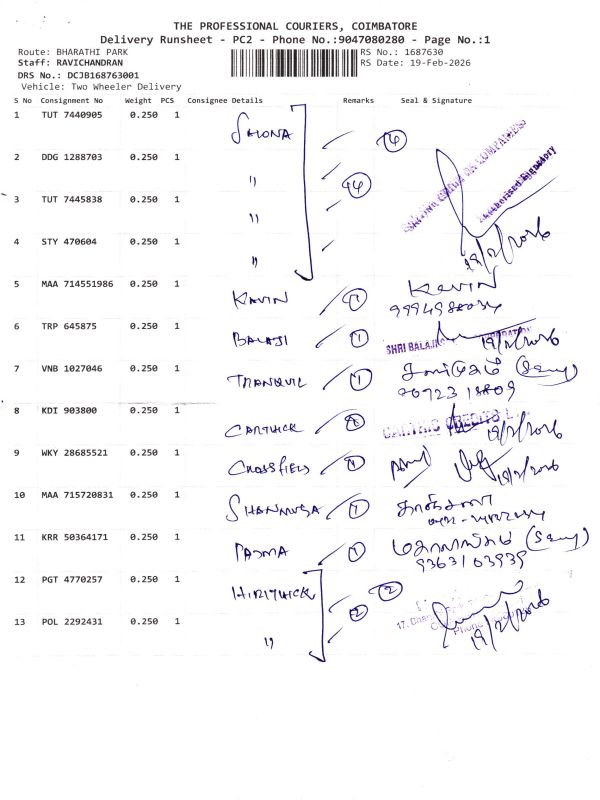 THE PROFESSIONAL COURIERS, COIMBATORE
Delivery Runsheet - PC2 - Phone No.:9047080280 - Page No.:1
Route: BHARATHI PARK RS No.: 1687630
Staff: RAVICHANDRAN RS Date: 19-Feb-2026
DRS No.: DCJB168763001
Vehicle: Two Wheeler Delivery
S No Consignment No Weight PCS Consignee Details Remarks Seal & Signature
1 TUT 7440905 0.250 1
SHONA 4
2 DDG 1288703 0.250 1
" 44
Authorised Signatory
3 TUT 7445838 0.250 1
"
19/2/2026
4 STY 470604 0.250 1
"
5 MAA 714551986 0.250 1
KAVIN 1 KEVIN
6 TRP 645875 0.250 1
BALAJI 1 SHRI BALAJI 19/2/2026
7 VNB 1027046 0.250 1
TRANQUIL 1
90723 18809
8 KDI 903800 0.250 1
CARTHICK 1 19/2/2026
9 WKY 28685521 0.250 1
CROSSFIELD 1 19/2/2026
10 MAA 715720831 0.250 1
SHANMUGA 1
11 KRR 50364171 0.250 1
PADMA 1
9363103939
12 PGT 4770257 0.250 1
HIRITHICK 2
2
17, Phone 19/2/2026
13 POL 2292431 0.250 1
"